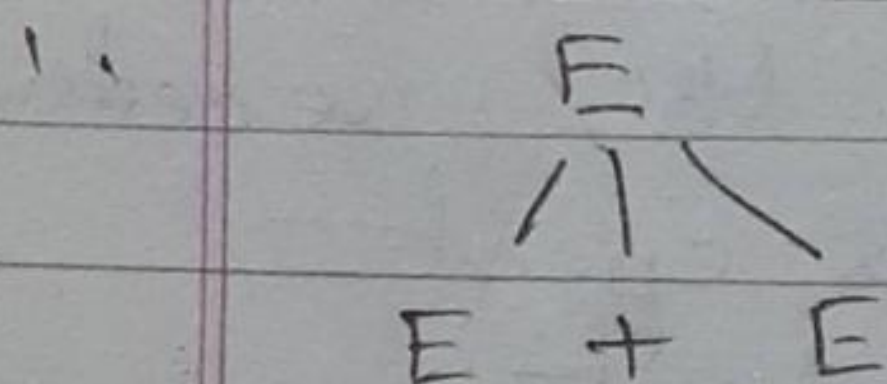 1. E
E + E